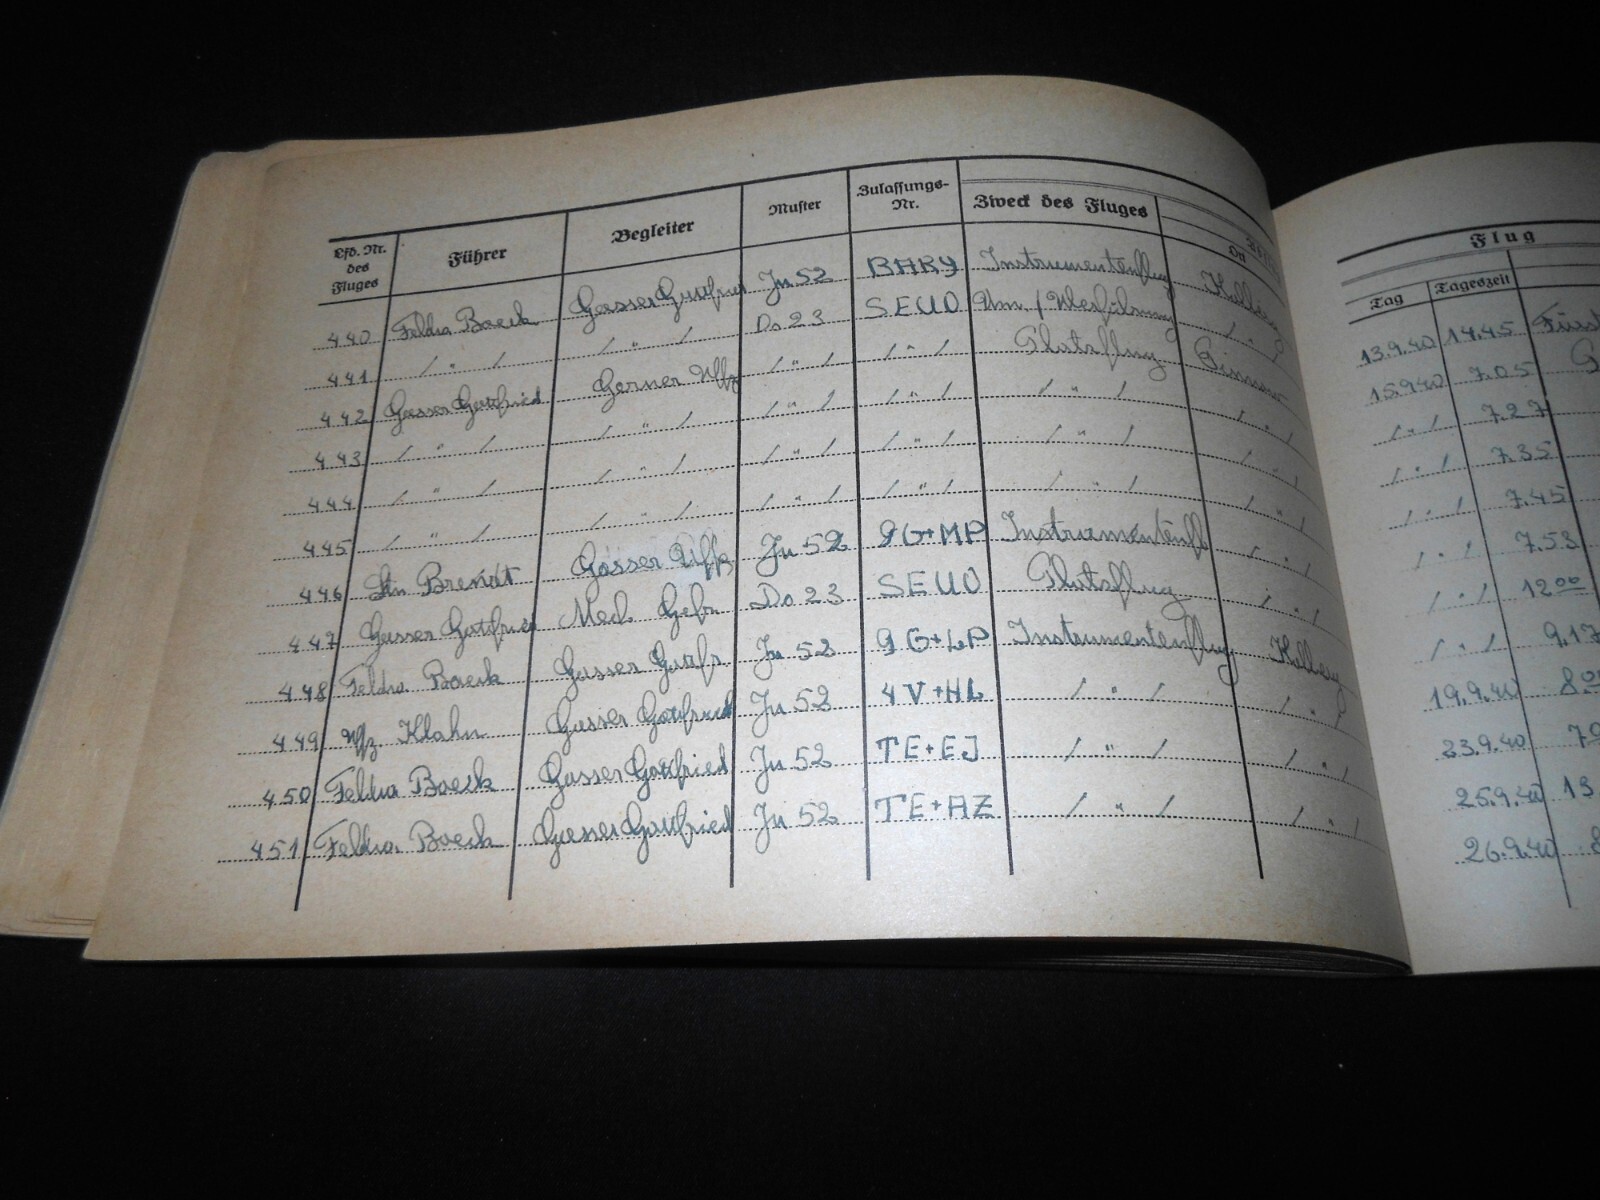 Lfd. Nr. des Fluges Führer Begleiter Muster Zulassungs-Nr. Zweck des Fluges Ort Flug
Tag Tageszeit
440 Feldw Boeck Gasser Gottfried Ju 52 BARY Instrumentenflug 13.9.40 14.45
441 / " / / " / Do 23 SEUO 15.9.40 7.05
442 Gasser Gottfried Gerner Uffz / " / / " / Platzflug / " / 7.27
443 / " / / " / / " / / " / / " / / " / / " / 7.35
444 / " / / " / / " / / " / / " / / " / / " / 7.45
445 / " / / " / / " / / " / / " / / " / / " / 7.53
446 Brendt Gasser Uffz Ju 52 9G+MP Instrumentenfl / " / / " / 12 00
447 Gasser Gottfried Mech. Gefr. Do 23 SEUO Platzflug / " / / " / 9.17
448 Feldw Boeck Gasser Gottfr. Ju 52 9G+LP Instrumentenflug 19.9.40
449 Uffz Klahn Gasser Gottfried Ju 52 4V+HL / " / / " / 23.9.40
450 Feldw Boeck Gasser Gottfried Ju 52 TE+EJ / " / / " / 25.9.40 13
451 Feldw. Boeck Gasser Gottfried Ju 52 TE+AZ / " / / " / 26.9.40